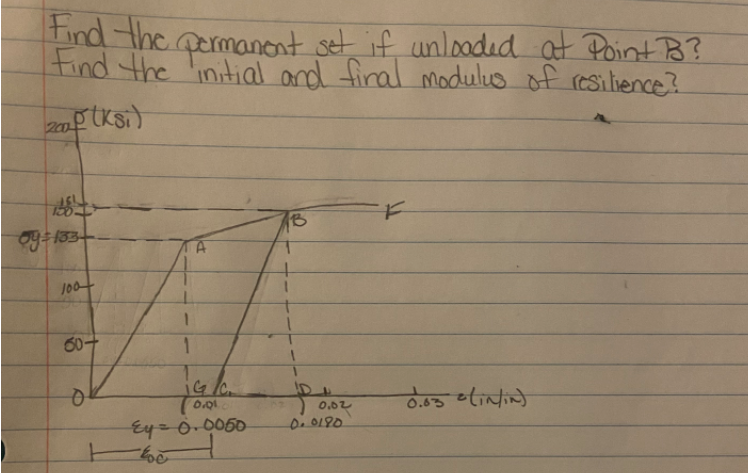 Find the permanent set if unloaded at Point B?
Find the initial and final modulus of resilience?
200 σ (Ksi)
151
150
B
F
σy=133
A
100
50
0
G
C
D
0.01
0.02
0.03
ε (in/in)
εy = 0.0050
0.0190
εoc